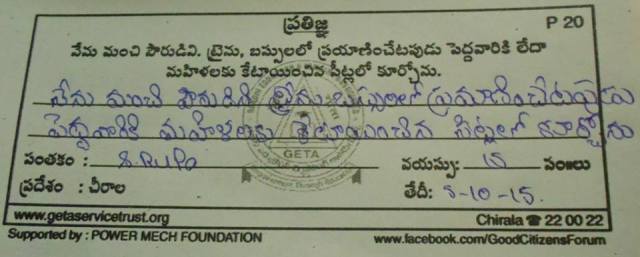 ప్రతిజ్ఞ P 20
నేను మంచి పౌరుడిని. ట్రైను, బస్సులలో ప్రయాణించేటపుడు పెద్దవారికి లేదా
మహిళలకు కేటాయించిన సీట్లలో కూర్చోను.
నేను మంచి పౌరుడిని ట్రైను బస్సులలో ప్రయాణించేటప్పుడు
పెద్దవారికి మహిళలకు కేటాయించిన సీట్లలో కూర్చోను
సంతకం : S. RUPA వయస్సు: 15 సం॥లు
GETA
ప్రదేశం : చీరాల తేదీ: 5-10-15.
www.getaservicetrust.org Chirala ☎ 22 00 22
Supported by : POWER MECH FOUNDATION www.facebook.com/GoodCitizensForum